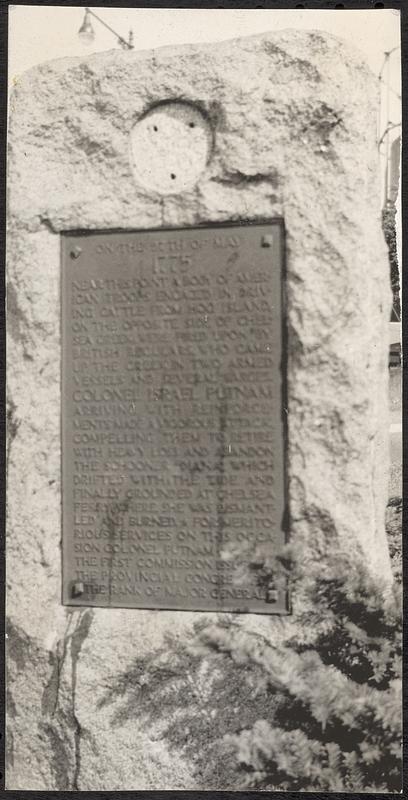 ON THE 27TH OF MAY
1775
NEAR THIS POINT A BODY OF AMER-
ICAN TROOPS ENGAGED IN DRIV-
ING CATTLE FROM HOG ISLAND,
ON THE OPPOSITE SIDE OF CHEL-
SEA CREEK, WERE FIRED UPON BY
BRITISH REGULARS, WHO CAME
UP THE CREEK IN TWO ARMED
VESSELS AND SEVERAL BARGES.
COLONEL ISRAEL PUTNAM
ARRIVING WITH REINFORCE-
MENTS MADE A VIGOROUS ATTACK,
COMPELLING THEM TO RETIRE
WITH HEAVY LOSS AND ABANDON
THE SCHOONER "DIANA," WHICH
DRIFTED WITH THE TIDE AND
FINALLY GROUNDED AT CHELSEA
FERRY WHERE SHE WAS DISMANT-
LED AND BURNED. FOR MERITO-
RIOUS SERVICES ON THIS OCCA-
SION COLONEL PUTNAM
THE FIRST COMMISSION ISSU
THE PROVINCIAL CONGRE
THE RANK OF MAJOR GENERAL